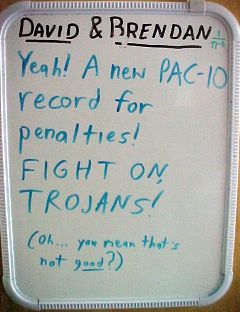 DAVID & BRENDAN
Yeah! A new PAC-10
record for
penalties!
FIGHT ON,
TROJANS!
(Oh... you mean that's
not good?)